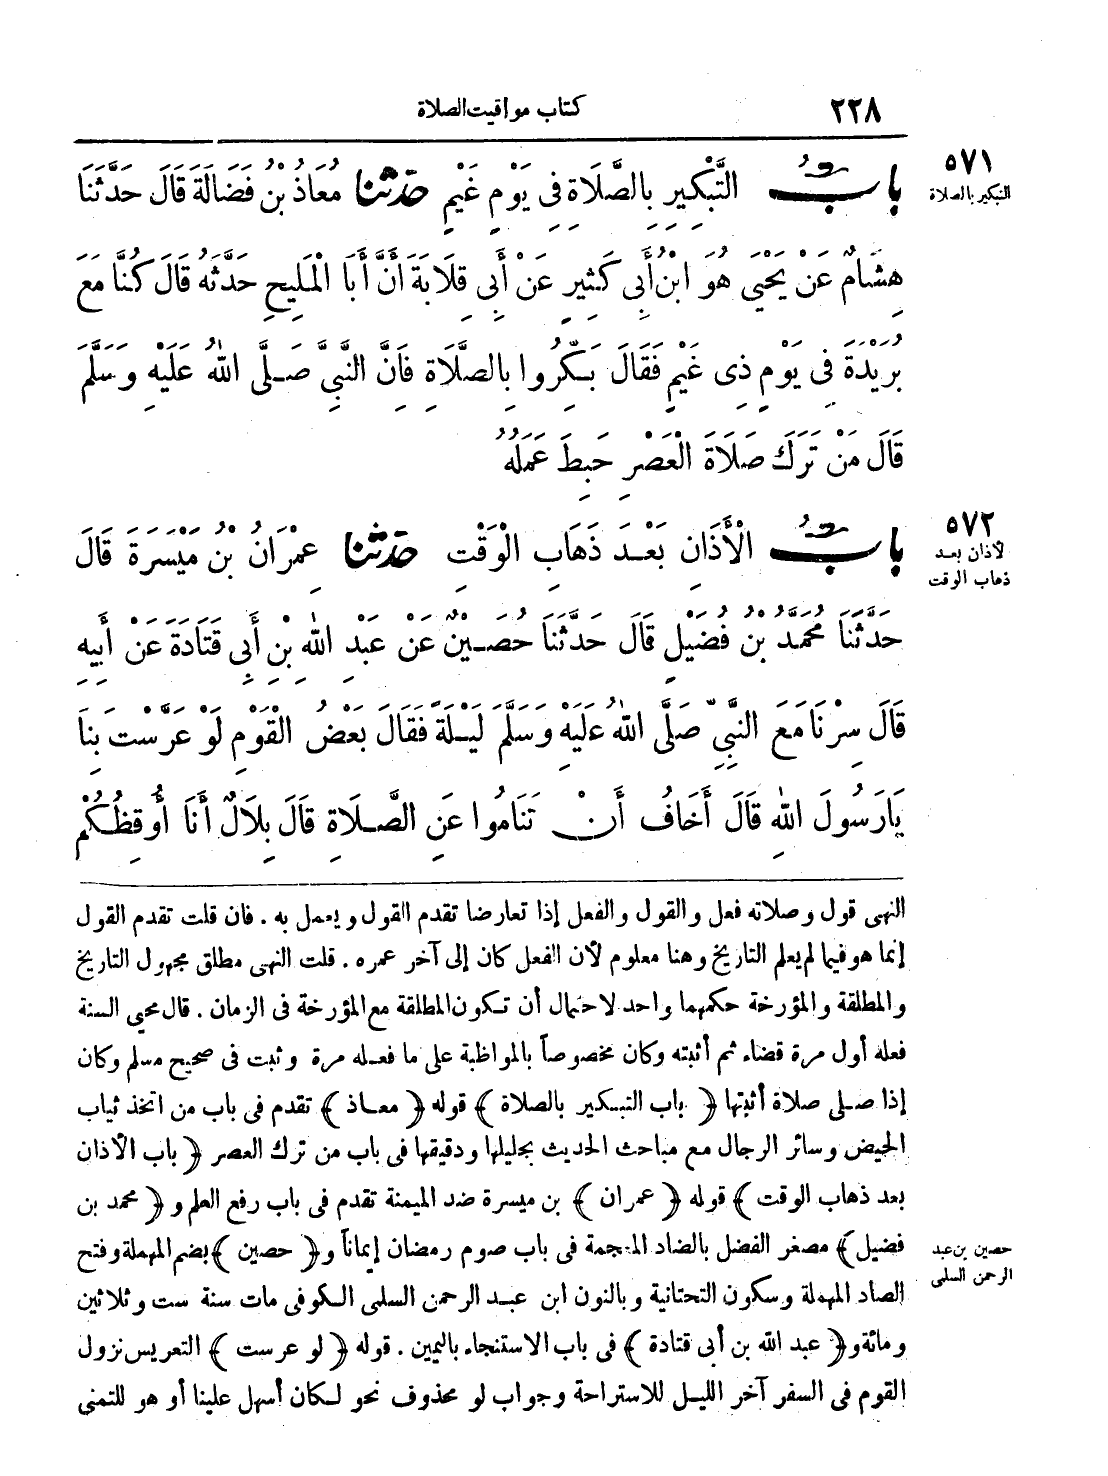 ٢٢٨ كتاب مواقيت الصلاة
٥٧١
التبكير بالصلاة
بَابُ التَّبْكِيرِ بِالصَّلَاةِ فِي يَوْمِ غَيْمٍ حَدَّثَنَا مُعَاذُ بْنُ فَضَالَةَ قَالَ حَدَّثَنَا
هِشَامٌ عَنْ يَحْيَى هُوَ ابْنُ أَبِي كَثِيرٍ عَنْ أَبِي قِلَابَةَ أَنَّ أَبَا الْمَلِيحِ حَدَّثَهُ قَالَ كُنَّا مَعَ
بُرَيْدَةَ فِي يَوْمٍ ذِي غَيْمٍ فَقَالَ بَكِّرُوا بِالصَّلَاةِ فَإِنَّ النَّبِيَّ صَلَّى اللهُ عَلَيْهِ وَسَلَّمَ
قَالَ مَنْ تَرَكَ صَلَاةَ الْعَصْرِ حَبِطَ عَمَلُهُ
٥٧٢
لأذان بعد
ذهاب الوقت
بَابُ الْأَذَانِ بَعْدَ ذَهَابِ الْوَقْتِ حَدَّثَنَا عِمْرَانُ بْنُ مَيْسَرَةَ قَالَ
حَدَّثَنَا مُحَمَّدُ بْنُ فُضَيْلٍ قَالَ حَدَّثَنَا حُصَيْنٌ عَنْ عَبْدِ اللهِ بْنِ أَبِي قَتَادَةَ عَنْ أَبِيهِ
قَالَ سِرْنَا مَعَ النَّبِيِّ صَلَّى اللهُ عَلَيْهِ وَسَلَّمَ لَيْلَةً فَقَالَ بَعْضُ الْقَوْمِ لَوْ عَرَّسْتَ بِنَا
يَارَسُولَ اللهِ قَالَ أَخَافُ أَنْ تَنَامُوا عَنِ الصَّلَاةِ قَالَ بِلَالٌ أَنَا أُوقِظُكُمْ
النهى قول وصلاته فعل والقول والفعل إذا تعارضا تقدم القول ويعمل به . فان قلت تقدم القول
إنما هو فيما لم يعلم التاريخ وهنا معلوم لأن الفعل كان إلى آخر عمره . قلت النهى مطلق مجهول التاريخ
والمطلقة والمؤرخة حكمهما واحد لاحتمال أن تكون المطلقة مع المؤرخة فى الزمان . قال محيى السنة
فعله أول مرة قضاء ثم أثبته وكان مخصوصاً بالمواظبة على ما فعله مرة وثبت فى صحيح مسلم وكان
إذا صلى صلاة أثبتها ﴿ باب التبكير بالصلاة ﴾ قوله ﴿ معاذ ﴾ تقدم فى باب من اتخذ ثياب
الحيض وسائر الرجال مع مباحث الحديث بجليلها ودقيقها فى باب من ترك العصر ﴿ باب الأذان
بعد ذهاب الوقت ﴾ قوله ﴿ عمران ﴾ بن ميسرة ضد الميمنة تقدم فى باب رفع العلم و ﴿ محمد بن
فضيل ﴾ مصغر الفضل بالضاد المعجمة فى باب صوم رمضان إيماناً و ﴿ حصين ﴾ بضم المهملة وفتح
حصين بن عبد
الرحمن السلمى
الصاد المهملة وسكون التحتانية وبالنون ابن عبد الرحمن السلمى الكوفى مات سنة ست وثلاثين
ومائة و ﴿ عبد الله بن أبى قتادة ﴾ فى باب الاستنجاء باليمين . قوله ﴿ لو عرست ﴾ التعريس نزول
القوم فى السفر آخر الليل للاستراحة وجواب لو محذوف نحو لكان أسهل علينا أو هو للتمنى